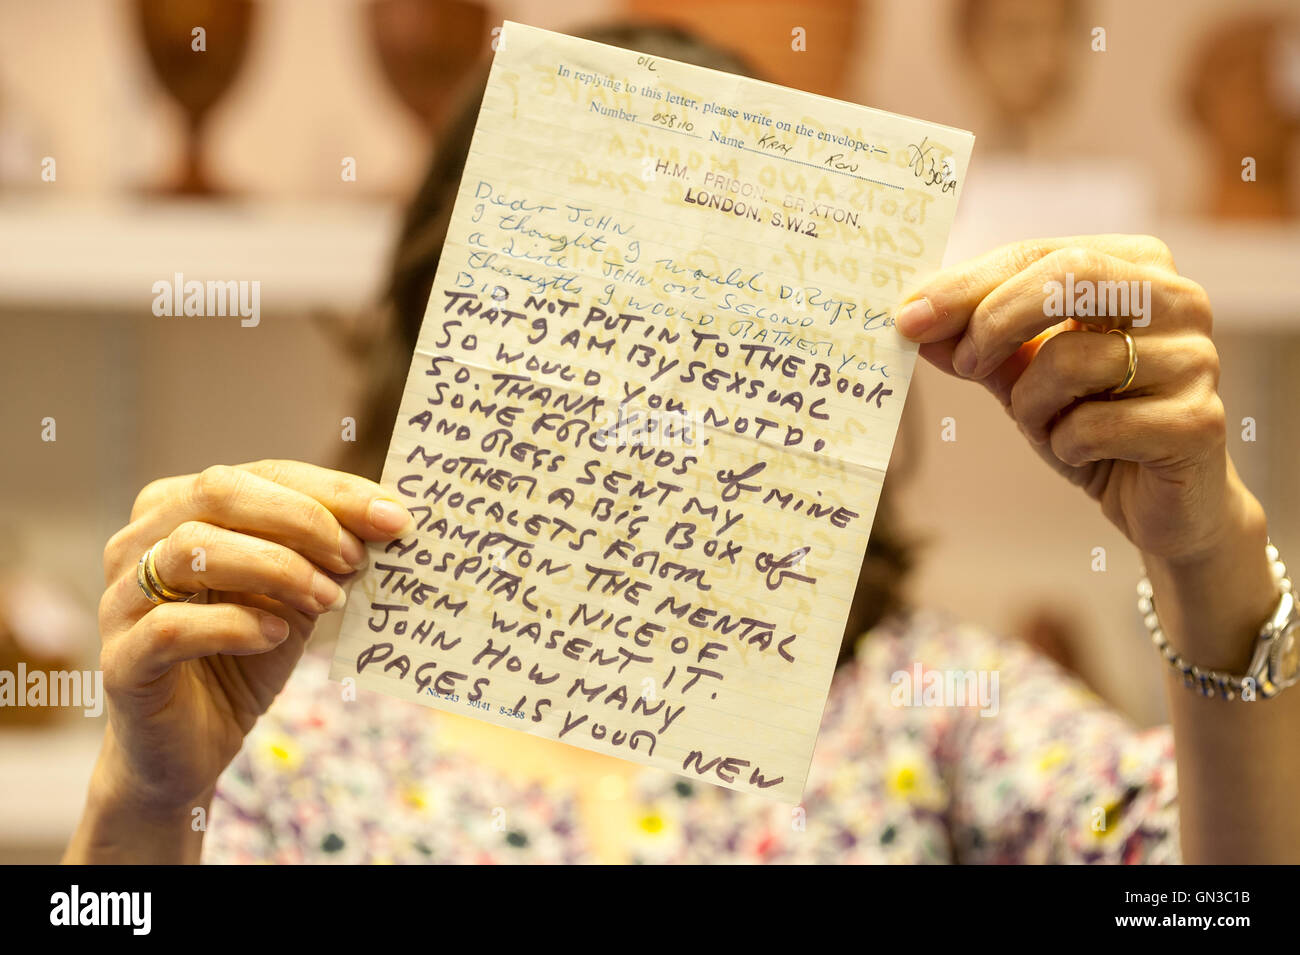 OIL
In replying to this letter, please write on the envelope:—
Number 058110 Name KRAY RON
H.M. PRISON, BRIXTON,
LONDON, S.W.2.
Dear JOHN
I thought I would DROP you
a Line. JOHN ON SECOND
thoughts I WOULD RATHER you
DID NOT PUT IN TO THE BOOK
THAT I AM BY SEXSUAL
SO WOULD YOU NOT DO
SO. THANK YOU.
SOME FREINDS OF MINE
AND REGS SENT MY
MOTHER A BIG BOX OF
CHOCALETS FORM
RAMPTON THE MENTAL
HOSPITAL. NICE OF
THEM WASENT IT.
JOHN HOW MANY
PAGES IS YOUR NEW
No. 243 30141 8-2-68
alamy
alamy stock photo
GN3C1B
www.alamy.com